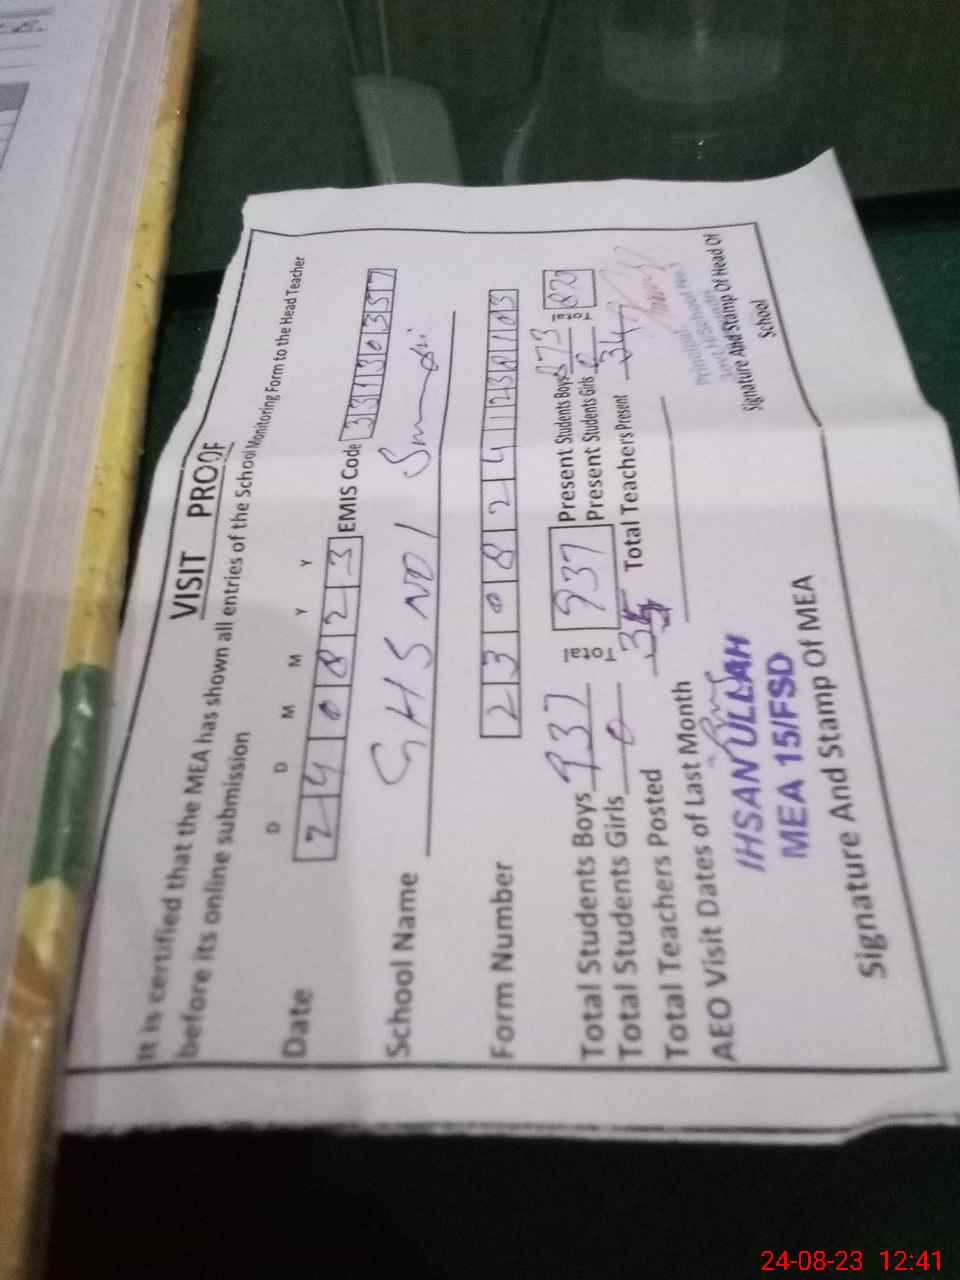 VISIT PROOF
It is certified that the MEA has shown all entries of the School Monitoring Form to the Head Teacher
before its online submission
D D M M Y Y
Date 240823 EMIS Code 33130357
School Name GHS NO1
Form Number
Total Students Boys 937 Total 937 Present Students Boys 873 Total
Total Students Girls 0 Present Students Girls 0
Total Teachers Posted 35 Total Teachers Present 34
AEO Visit Dates of Last Month
IHSAN ULLAH
MEA 15/FSD
Signature And Stamp Of MEA
Signature And Stamp Of Head Of
School
24-08-23 12:41